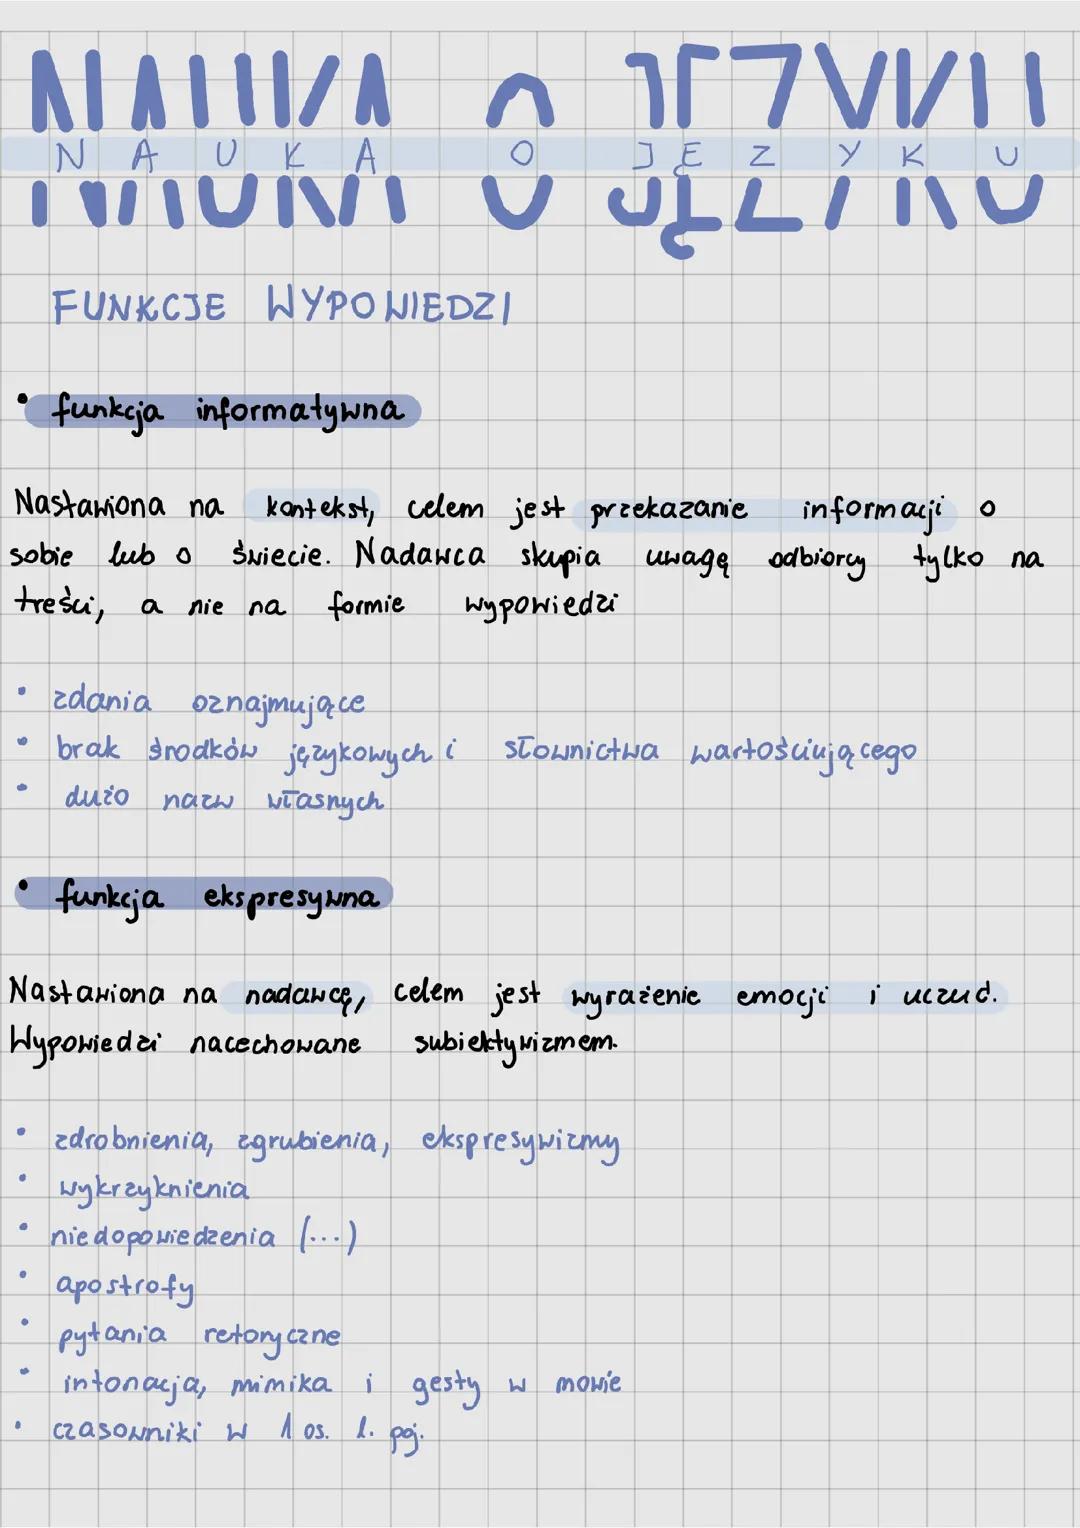 NAUKA O JĘZYKU
NAUKA O JĘZYKU
FUNKCJE WYPOWIEDZI
• funkcja informatywna
Nastawiona na kontekst, celem jest przekazanie informacji o
sobie lub o świecie. Nadawca skupia uwagę odbiorcy tylko na
treści, a nie na formie wypowiedzi
• zdania oznajmujące
• brak środków językowych i słownictwa wartościującego
• dużo nazw własnych
• funkcja ekspresywna
Nastawiona na nadawcę, celem jest wyrażenie emocji i uczuć.
Wypowiedzi nacechowane subiektywizmem.
• zdrobnienia, zgrubienia, ekspresywizmy
• wykrzyknienia
• niedopowiedzenia (...)
• apostrofy
• pytania retoryczne
• intonacja, mimika i gesty w mowie
• czasowniki w 1 os. l. poj.